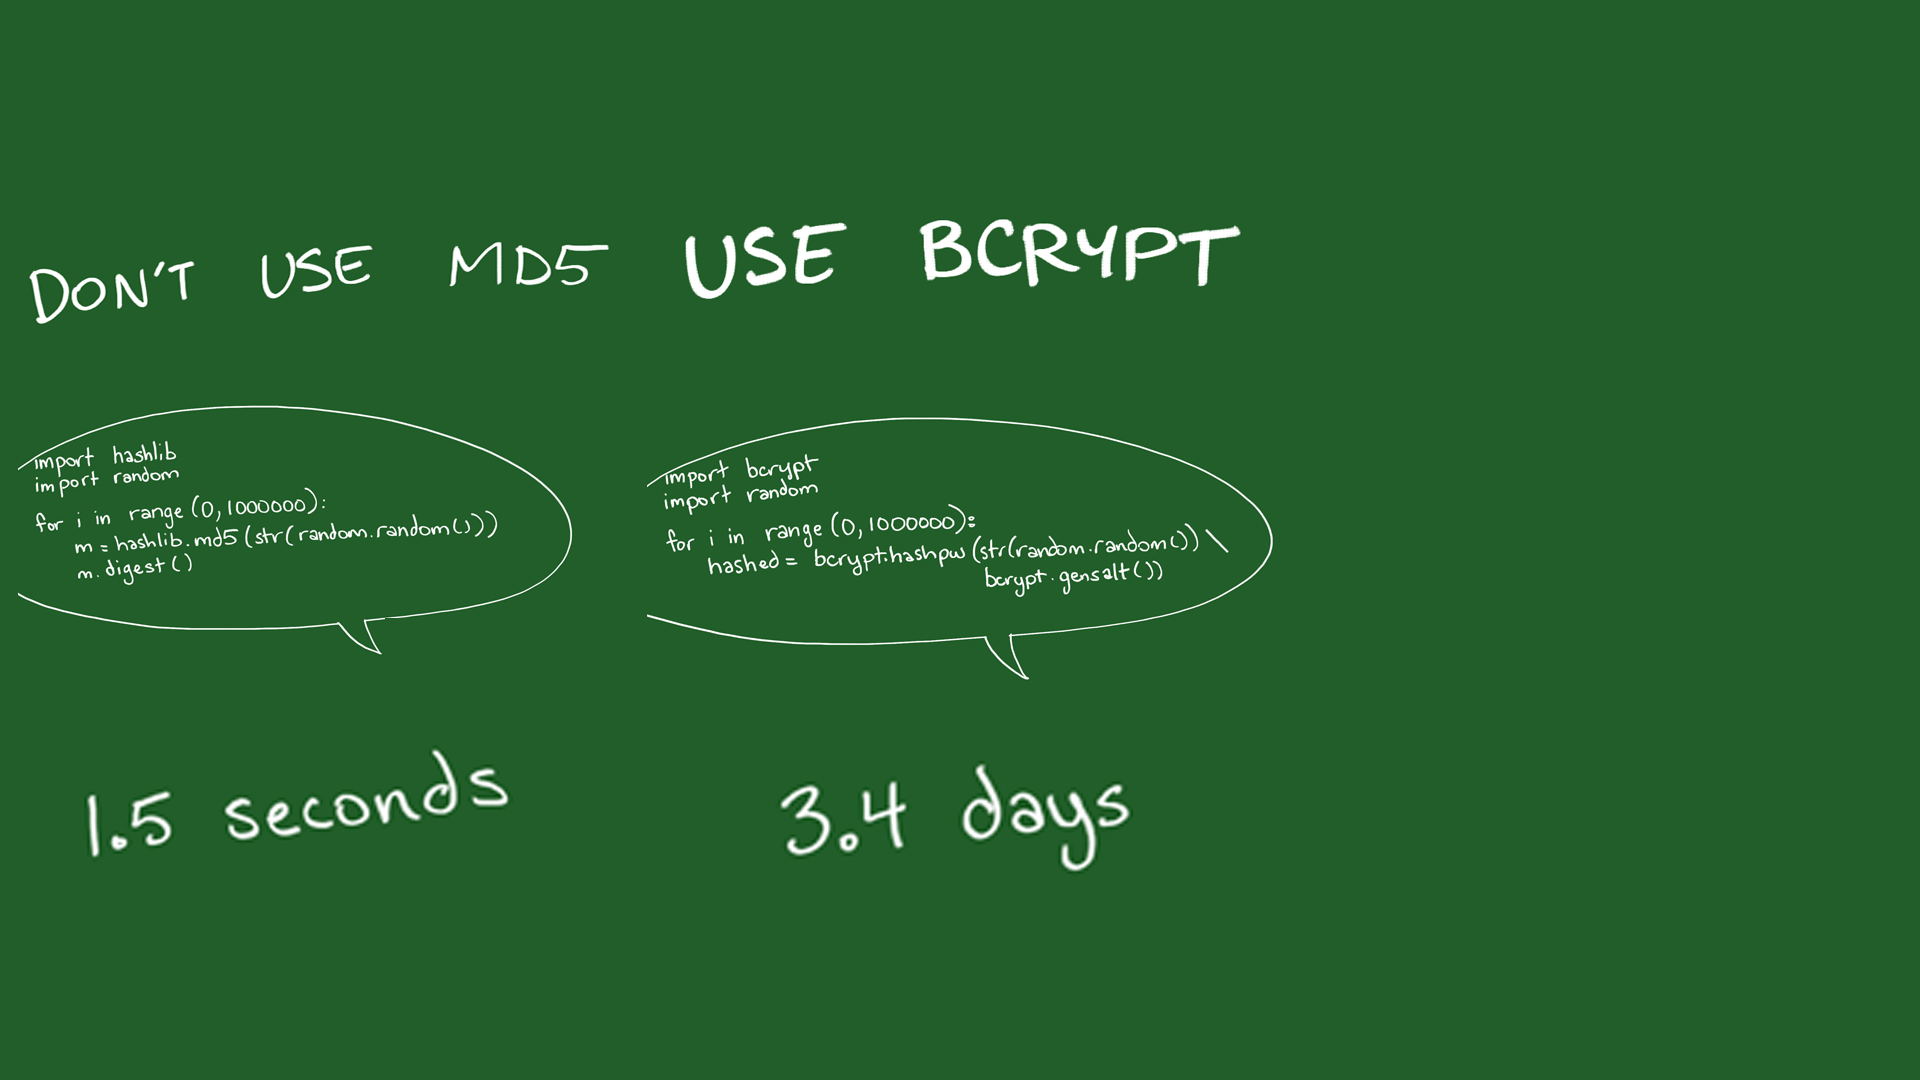 DON'T USE MD5 USE BCRYPT
import hashlib
import random
for i in range(0,1000000):
m = hashlib.md5(str(random.random()))
m.digest()
import bcrypt
import random
for i in range(0,1000000):
hashed = bcrypt.hashpw(str(random.random()) \
bcrypt.gensalt())
1.5 seconds
3.4 days